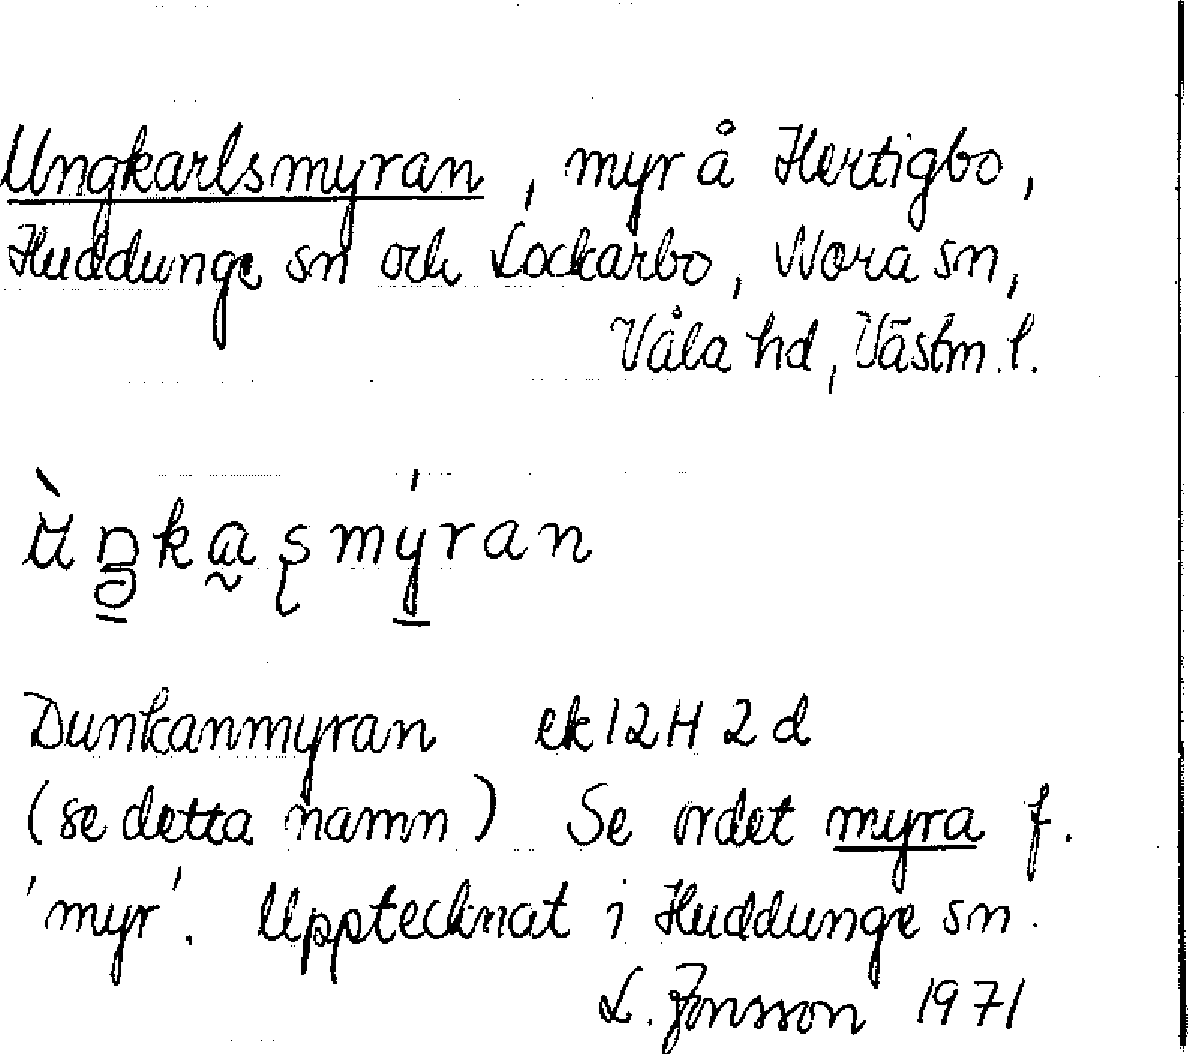 Ungkarlsmyran, myr å Hertigbo,
Huddunge sn och Lockarbo, Nora sn,
Våla hd, Västm. l.
ùŋka̰ʂmýran
Dunkanmyran ek 12H 2d
(se detta namn) Se ordet myra f.
'myr'. Upptecknat i Huddunge sn.
L. Jonsson 1971